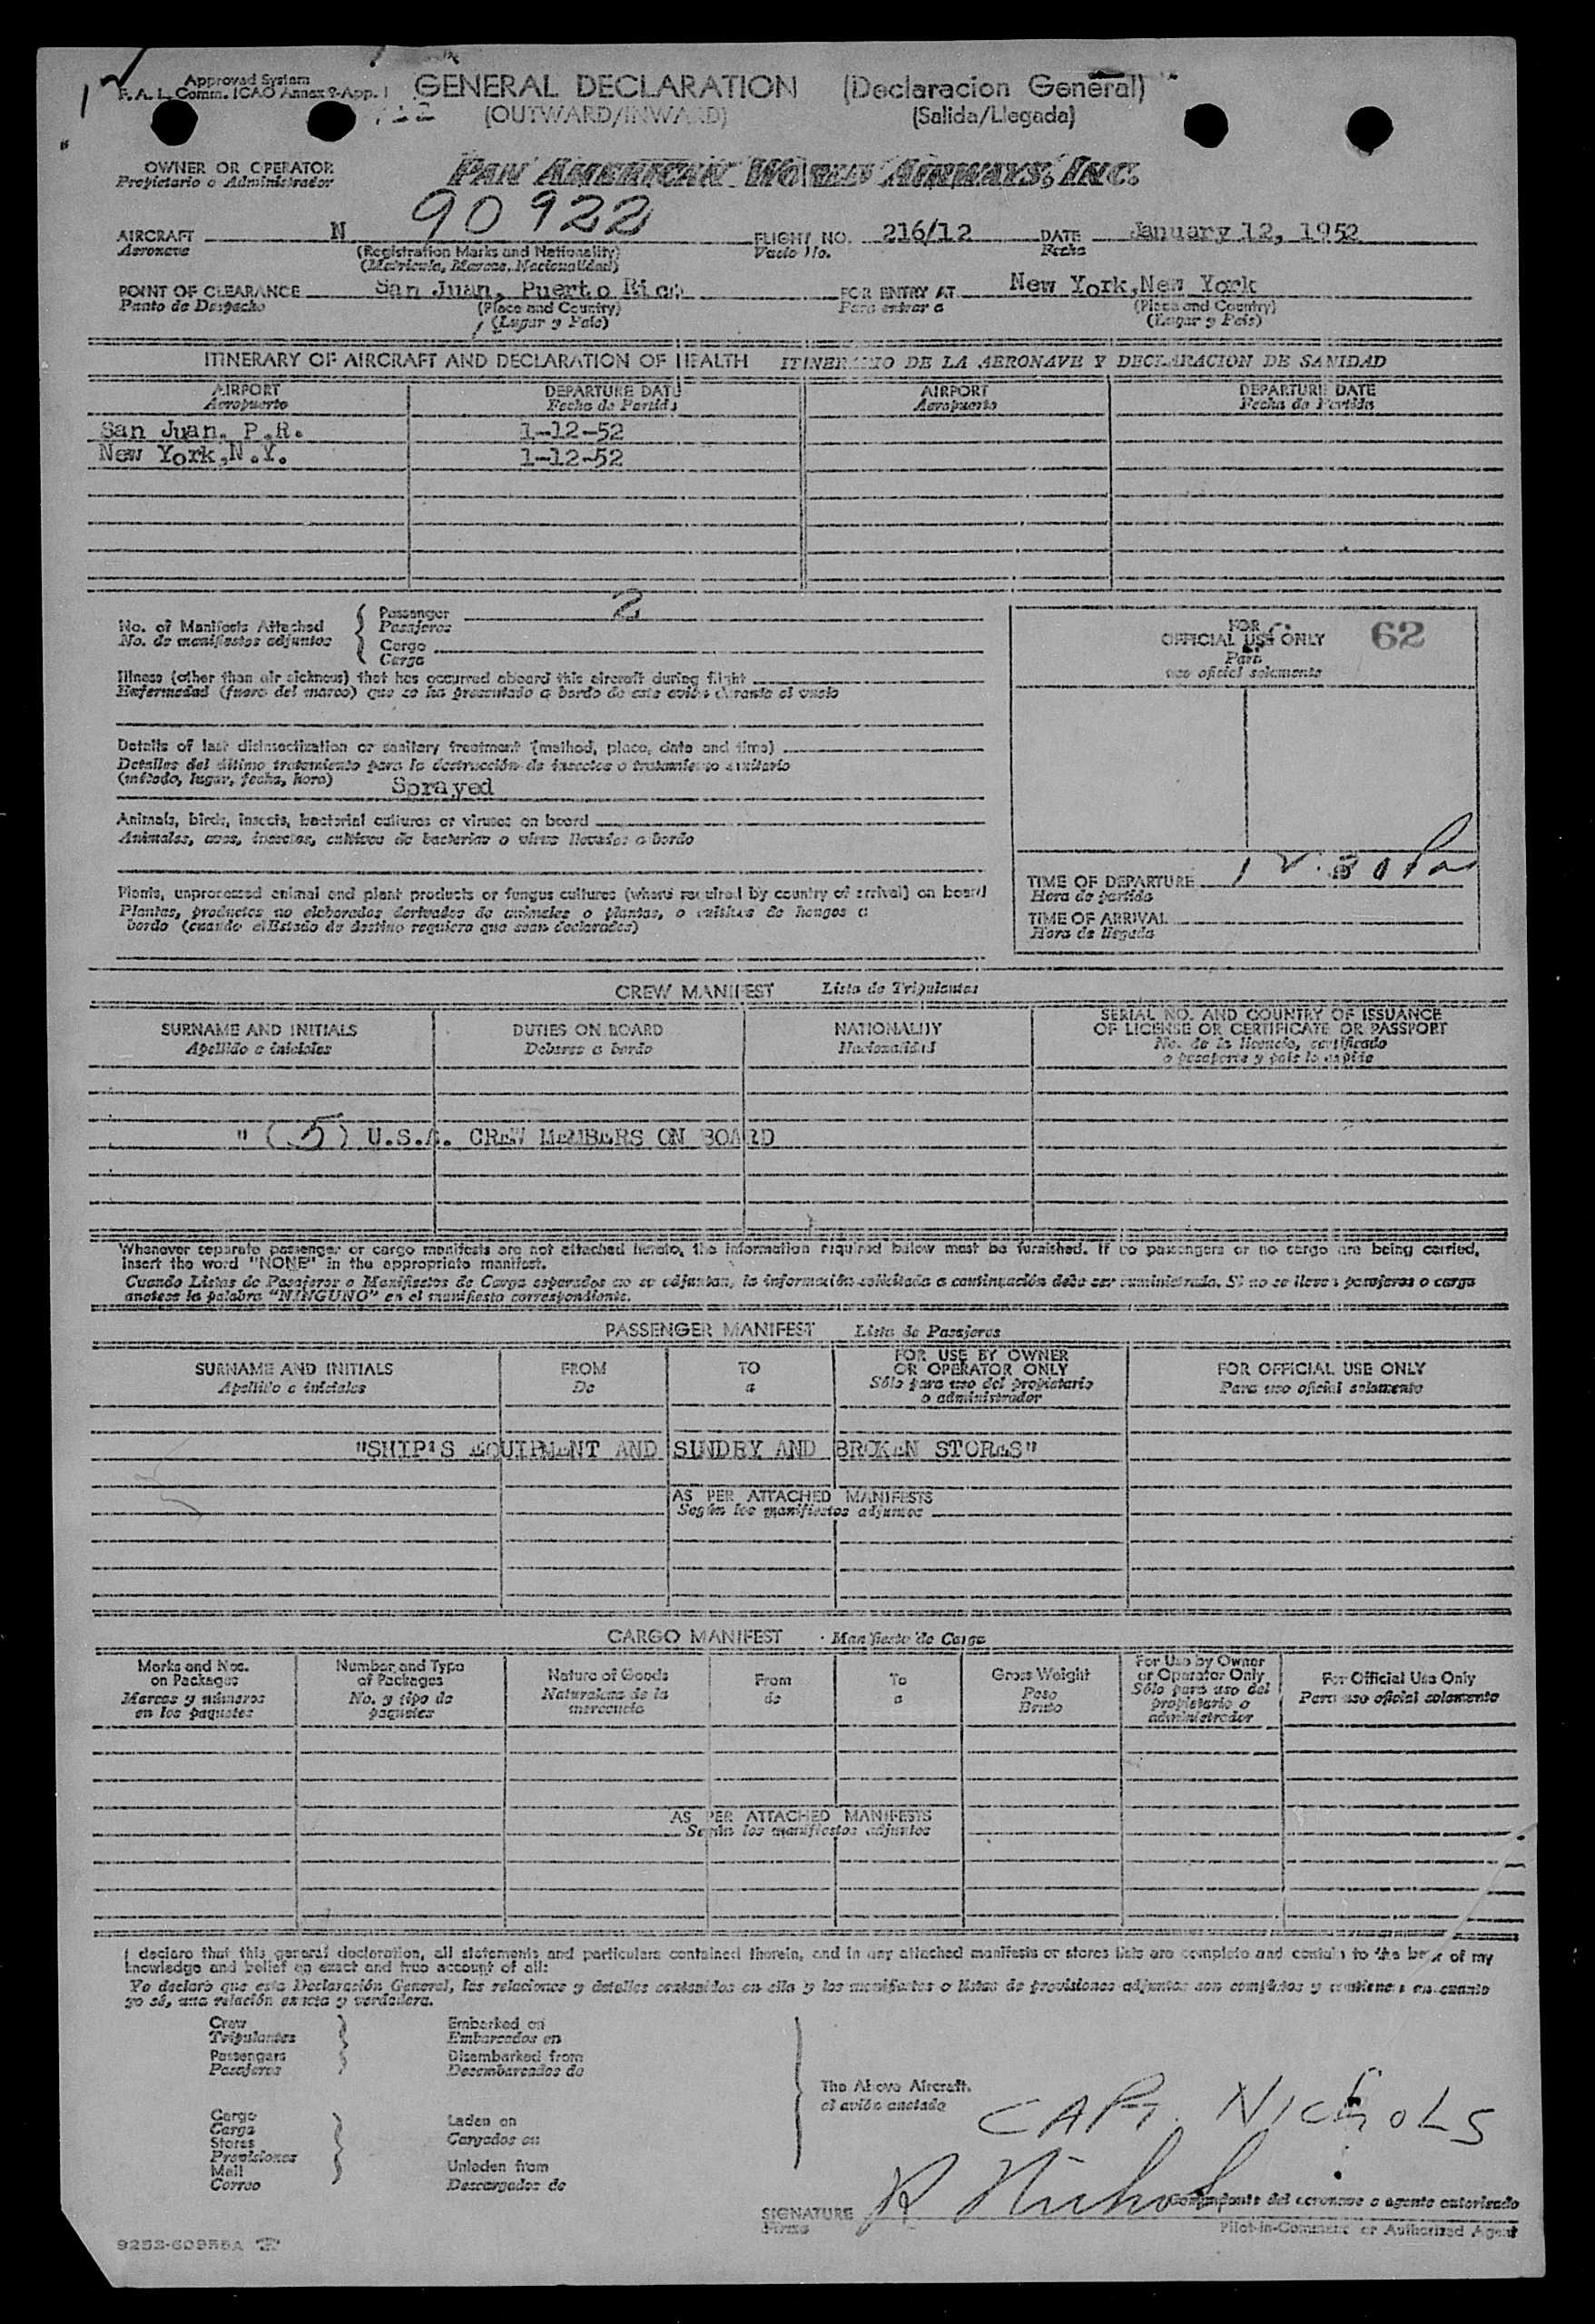 Approved System
F. A. L. Comm. ICAO Annex 9-App. I
GENERAL DECLARATION (Declaracion General)
(OUTWARD/INWARD) (Salida/Llegada)
OWNER OR OPERATOR
Propietario o Administrador
PAN AMERICAN WORLD AIRWAYS, INC.
AIRCRAFT N 90922 FLIGHT NO. 216/12 DATE January 12, 1952
Aeronave (Registration Marks and Nationality) Vuelo No. Fecha
(Matricula, Marcas, Nacionalidad)
POINT OF CLEARANCE San Juan, Puerto Rico FOR ENTRY AT New York,New York
Punto de Despacho (Place and Country) Para entrar a (Place and Country)
(Lugar y Pais) (Lugar y Pais)
ITINERARY OF AIRCRAFT AND DECLARATION OF HEALTH ITINERARIO DE LA AERONAVE Y DECLARACION DE SANIDAD
AIRPORT DEPARTURE DATE AIRPORT DEPARTURE DATE
Aeropuerto Fecha de Partida Aeropuerto Fecha de Partida
San Juan, P.R. 1-12-52
New York,N.Y. 1-12-52
No. of Manifests Attached
No. de manifiestos adjuntos
Passenger 2
Pasajeros
Cargo
Carga
FOR
OFFICIAL USE ONLY 62
Para
uso oficial solamente
Illness (other than air sickness) that has occurred aboard this aircraft during flight
Enfermedad (fuera del mareo) que se ha presentado a bordo de este avión durante el vuelo
Details of last disinsectization or sanitary treatment (method, place, date and time)
Detalles del último tratamiento para la destrucción de insectos o tratamiento sanitario
(método, lugar, fecha, hora) Sprayed
Animals, birds, insects, bacterial cultures or viruses on board
Animales, aves, insectos, cultivos de bacterias o virus llevados a bordo
Plants, unprocessed animal and plant products or fungus cultures (where required by country of arrival) on board
Plantas, productos no elaborados derivados de animales o plantas, o cultivos de hongos a
bordo (cuando el Estado de destino requiera que sean declarados)
TIME OF DEPARTURE 12:30
Hora de partida
TIME OF ARRIVAL
Hora de llegada
CREW MANIFEST Lista de Tripulantes
SURNAME AND INITIALS DUTIES ON BOARD NATIONALITY SERIAL NO. AND COUNTRY OF ISSUANCE
OF LICENSE OR CERTIFICATE OR PASSPORT
Apellido e iniciales Deberes a bordo Nacionalidad No. de la licencia, certificado
o pasaporte y país lo expide
" (5) U.S.A. CREW MEMBERS ON BOARD
Whenever separate passenger or cargo manifests are not attached hereto, the information required below must be furnished. If no passengers or no cargo are being carried,
insert the word "NONE" in the appropriate manifest.
Cuando Listas de Pasajeros o Manifiestos de Carga separados no se adjuntan, la información solicitada a continuación debe ser suministrada. Si no se llevan pasajeros o carga
anotese la palabra "NINGUNO" en el manifiesto correspondiente.
PASSENGER MANIFEST Lista de Pasajeros
SURNAME AND INITIALS FROM TO FOR USE BY OWNER
OR OPERATOR ONLY FOR OFFICIAL USE ONLY
Apellido e iniciales De a Sólo para uso del propietario
o administrador Para uso oficial solamente
"SHIP'S EQUIPMENT AND SUNDRY AND BROKEN STORES"
AS PER ATTACHED MANIFESTS
Según los manifiestos adjuntos
CARGO MANIFEST Manifiesto de Carga
Marks and Nos.
on Packages
Marcas y números
en los paquetes
Number and Type
of Packages
No. y tipo de
paquetes
Nature of Goods
Naturaleza de la
mercancía
From
de
To
a
Gross Weight
Peso
Bruto
For Use by Owner
or Operator Only
Sólo para uso del
propietario o
administrador
For Official Use Only
Para uso oficial solamente
AS PER ATTACHED MANIFESTS
Según los manifiestos adjuntos
I declare that this general declaration, all statements and particulars contained therein, and in any attached manifests or stores lists are complete and contain to the best of my
knowledge and belief an exact and true account of all:
Yo declaro que esta Declaración General, las relaciones y detalles contenidos en ella y los manifiestos o listas de provisiones adjuntos son completos y contienen en cuanto
yo sé, una relación exacta y verdadera.
Crew
Tripulantes
Passengers
Pasajeros
Embarked on
Embarcados en
Disembarked from
Desembarcados de
Cargo
Carga
Stores
Provisiones
Mail
Correo
Laden on
Cargados en
Unladen from
Descargados de
The Above Aircraft.
el avión anotado
CAPT. NICHOLS
SIGNATURE R Nichols
Firma
Comandante del aeronave o agente autorizado
Pilot-in-Command or Authorized Agent
9253-60955A